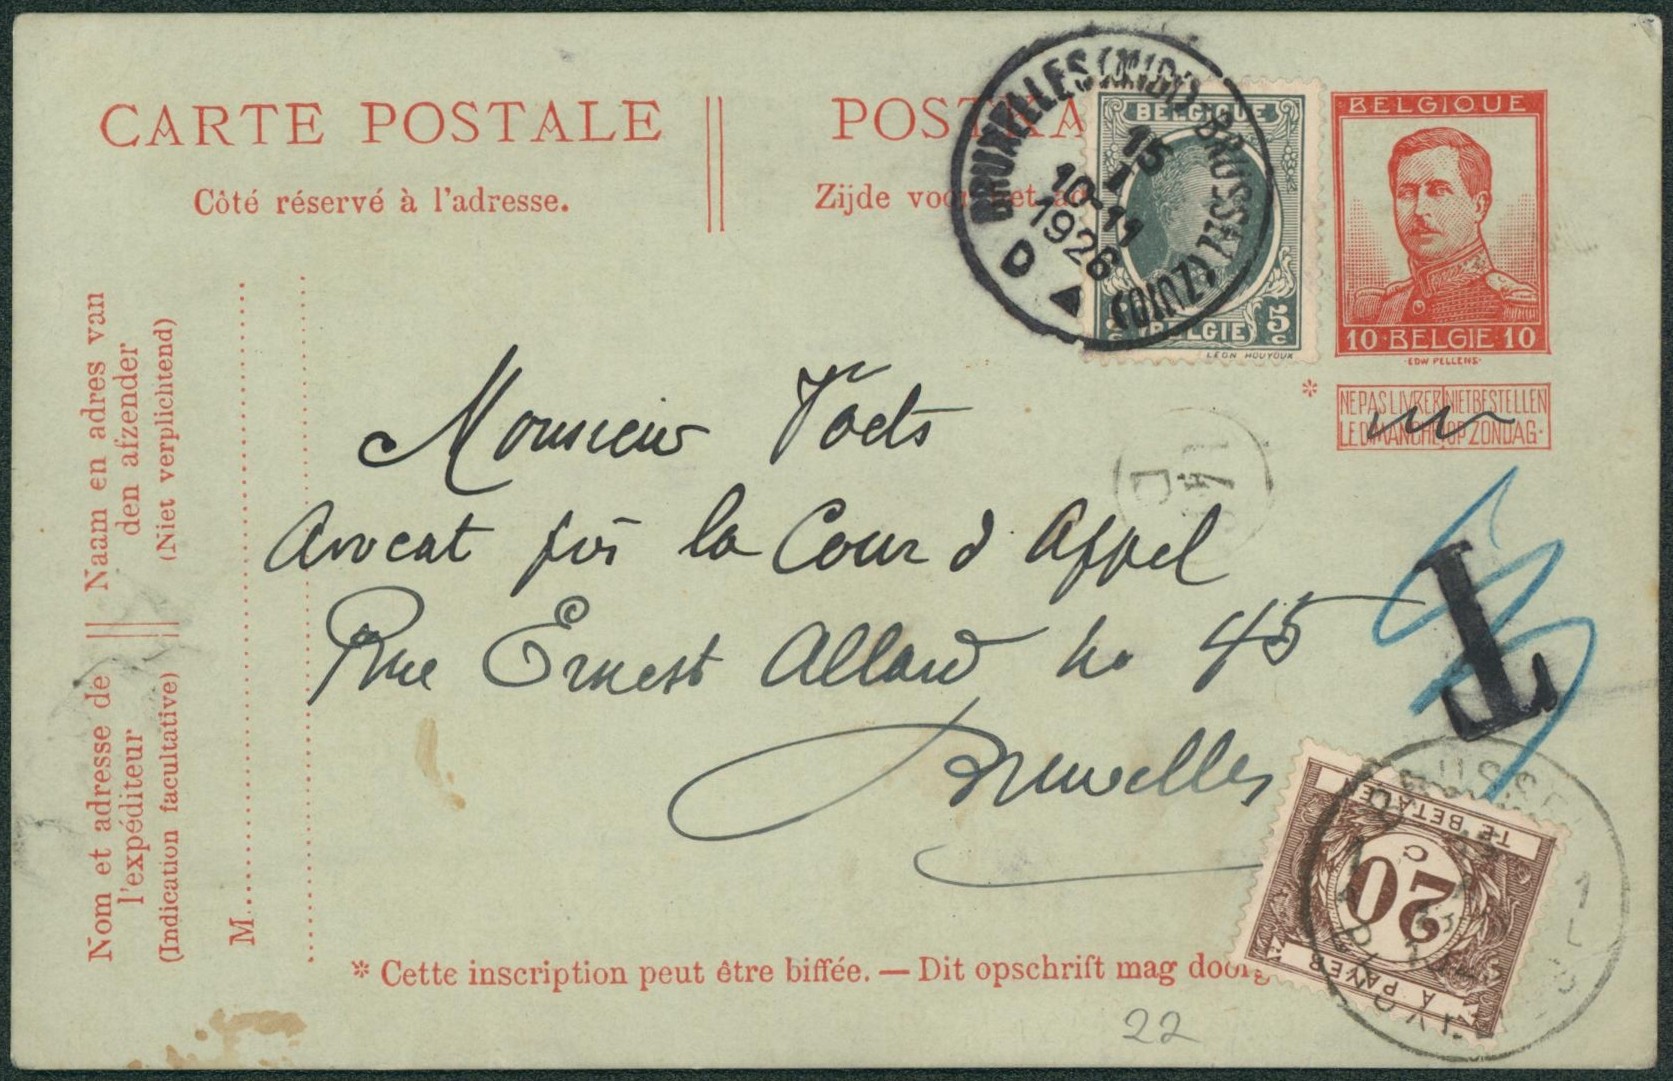 CARTE POSTALE
POSTKA
Côté réservé à l'adresse.
Zijde voor het ad
BRUXELLES (MIDI)
BRUSSEL (ZUID)
15
10-11
1926
D
BELGIQUE
5
c
BELGIË
LEON HOUYOUX
BELGIQUE
10 BELGIE 10
EDW PELLENS
*
NE PAS LIVRER LE DIMANCHE
NIET BESTELLEN OP ZONDAG.
Naam en adres van
den afzender
(Niet verplichtend)
Nom et adresse de
l'expéditeur
(Indication facultative)
M
Monsieur
Avocat près la Cour d'Appel
Rue Ernest Allard No 45
Bruxelles
T
TE BETALEN
20
C
A PAYER
* Cette inscription peut être biffée. — Dit opschrift mag doorg
22